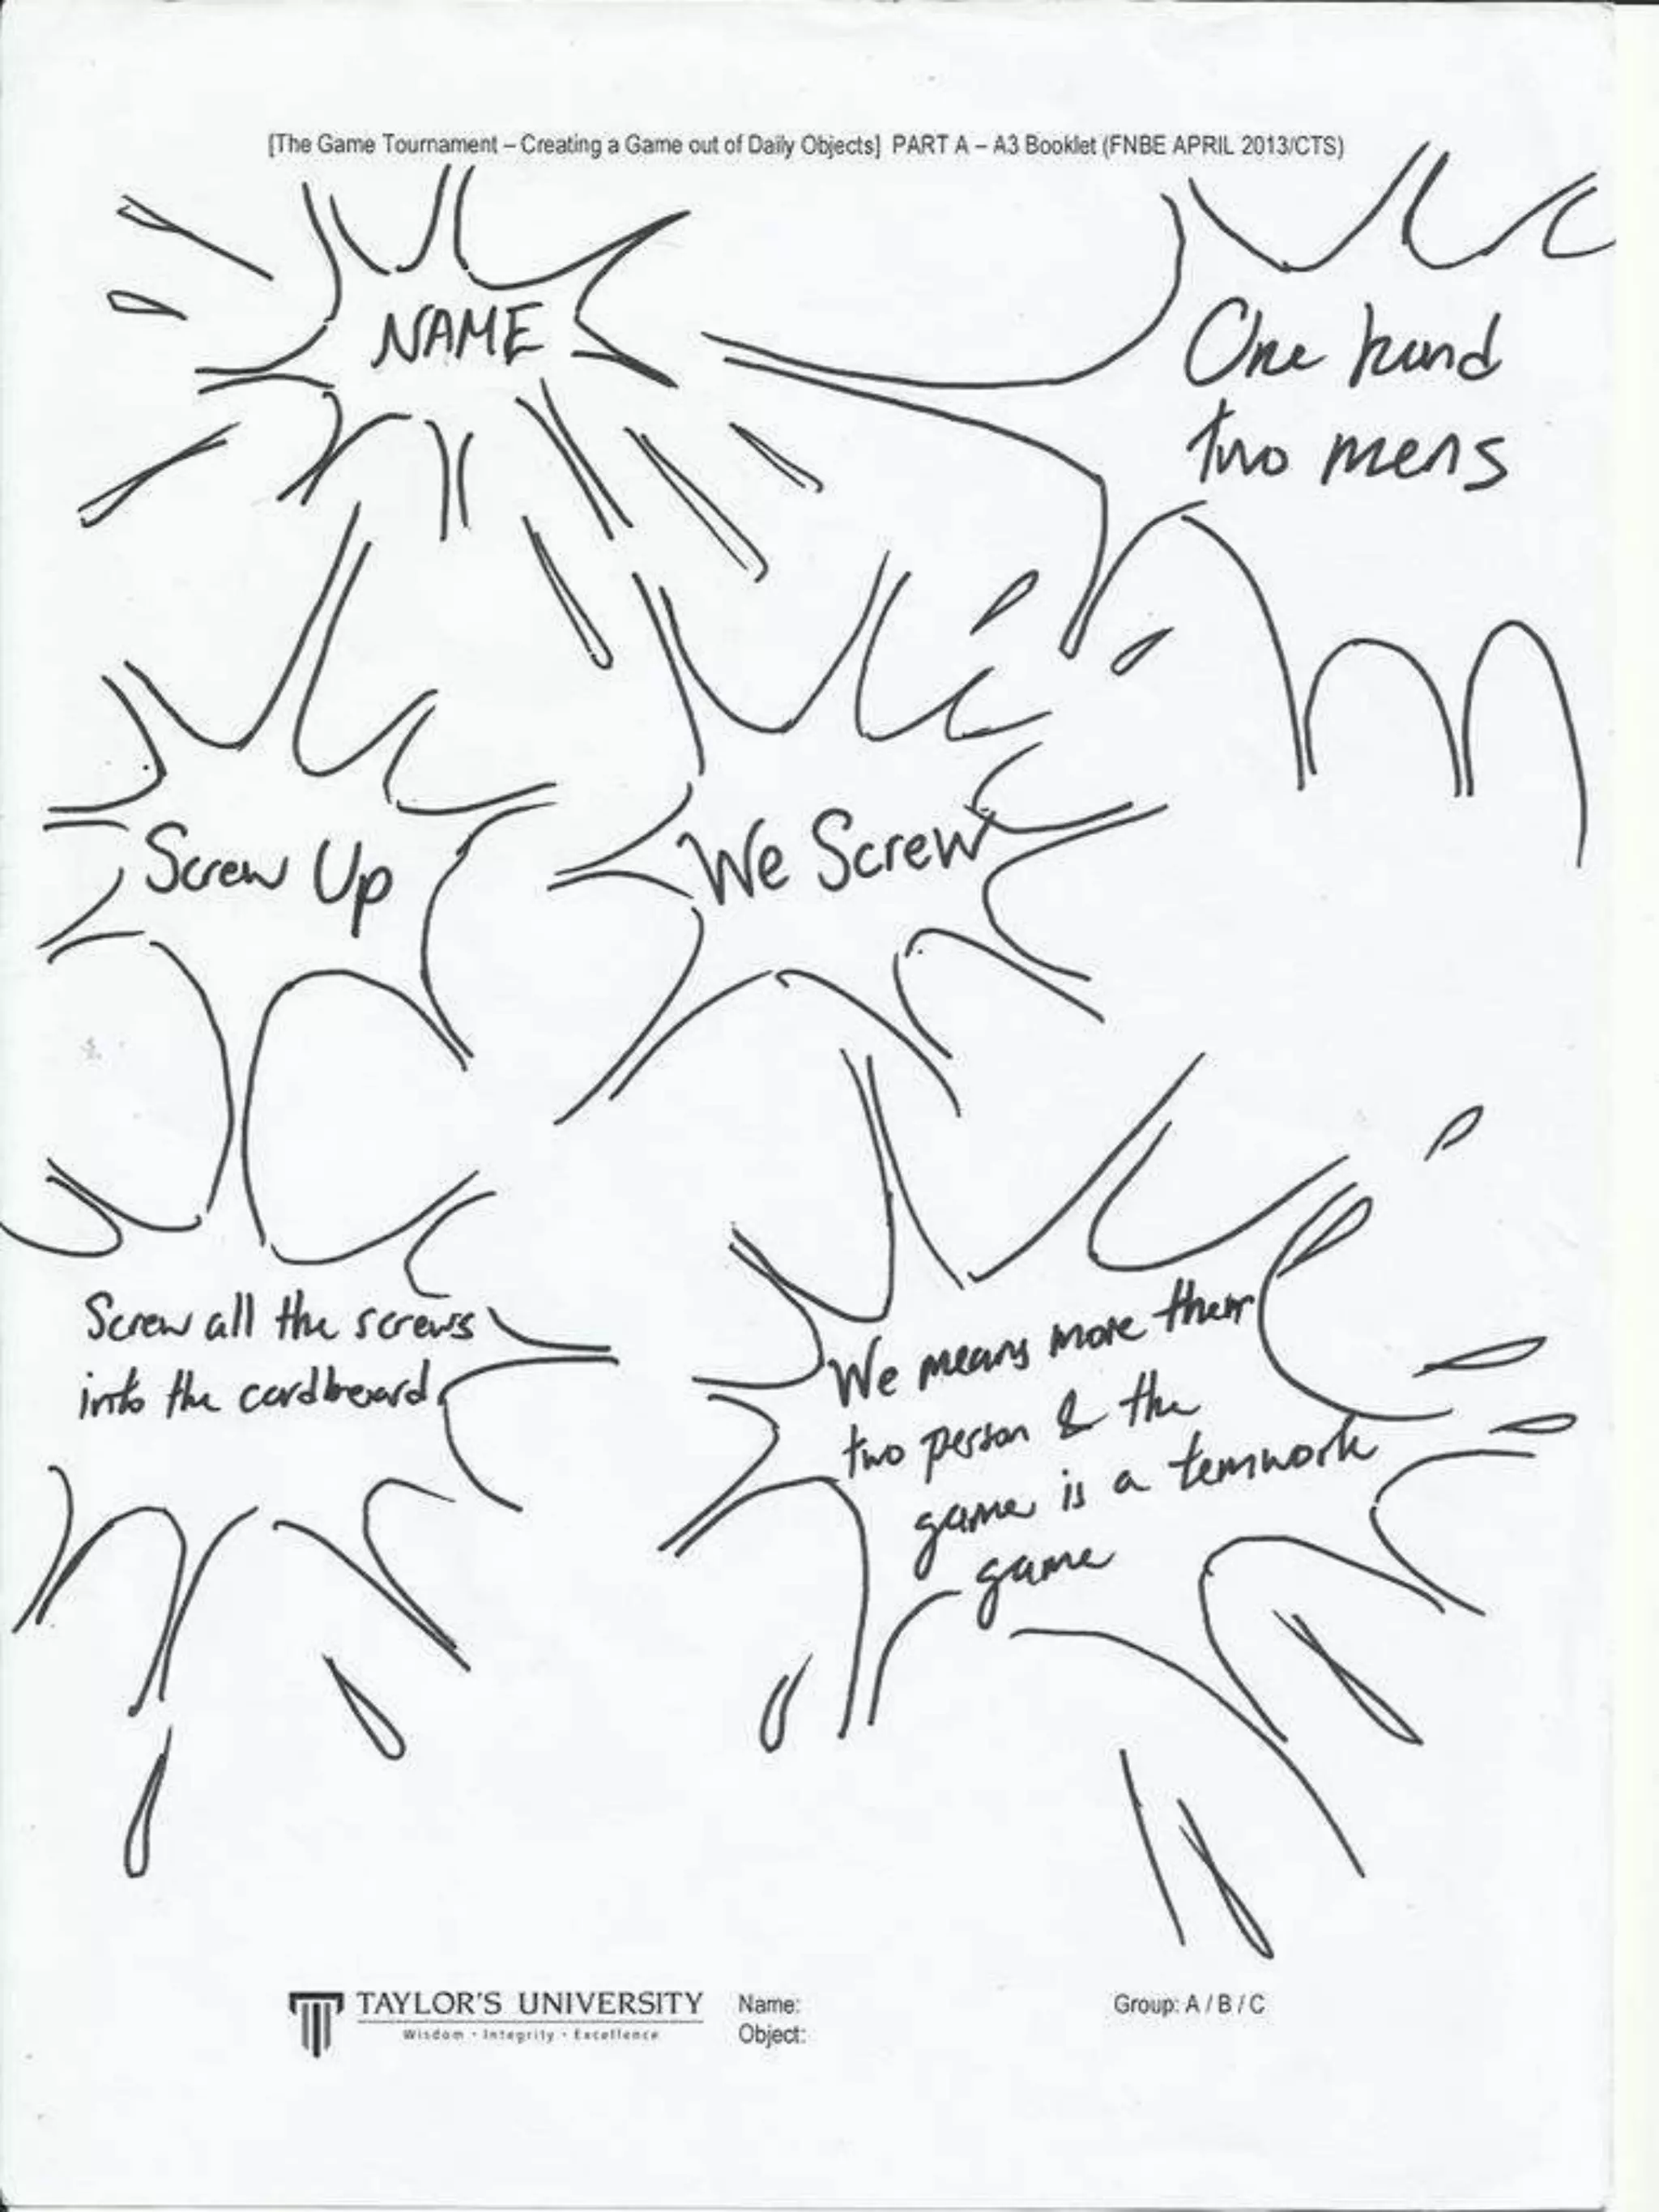 [The Game Tournament – Creating a Game out of Daily Objects] PART A – A3 Booklet (FNBE APRIL 2013/CTS)
NAME
One hand
two mens
Screw Up
We Screw
Screw all the screws
into the cardboard
We means more than
two person & the
game is a temwork
game
TAYLOR'S UNIVERSITY
Wisdom · Integrity · Excellence
Name:
Object:
Group: A / B / C